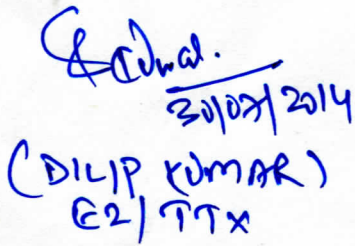 30/07/2014
(DILIP KUMAR)
E2/TTX